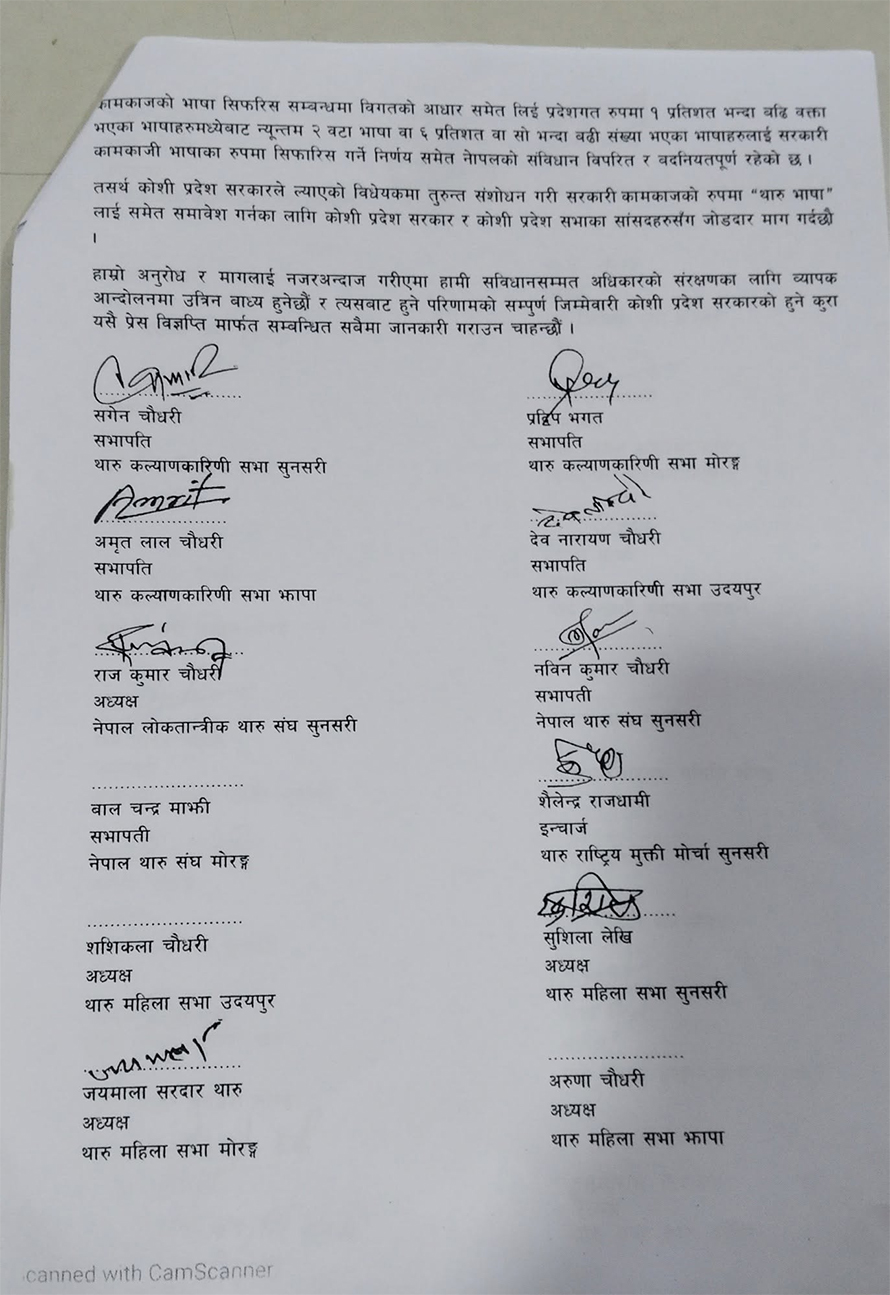 कामकाजको भाषा सिफरिस सम्बन्धमा विगतको आधार समेत लिई प्रदेशगत रुपमा १ प्रतिशत भन्दा बढि वक्ता
भएका भाषाहरुमध्येबाट न्यून्तम २ वटा भाषा वा ६ प्रतिशत वा सो भन्दा बढी संख्या भएका भाषाहरुलाई सरकारी
कामकाजी भाषाका रुपमा सिफारिस गर्ने निर्णय समेत नेापलको संविधान विपरित र बदनियतपूर्ण रहेको छ ।
तसर्थ कोशी प्रदेश सरकारले ल्याएको विधेयकमा तुरुन्त संशोधन गरी सरकारी कामकाजको रुपमा “थारु भाषा”
लाई समेत समावेश गर्नका लागि कोशी प्रदेश सरकार र कोशी प्रदेश सभाका सांसदहरुसँग जोडदार माग गर्दछौ
।
हाम्रो अनुरोध र मागलाई नजरअन्दाज गरीएमा हामी सविधानसम्मत अधिकारको संरक्षणका लागि व्यापक
आन्दोलनमा उत्रिन बाध्य हुनेछौं र त्यसबाट हुने परिणामको सम्पुर्ण जिम्मेवारी कोशी प्रदेश सरकारको हुने कुरा
यसै प्रेस विज्ञप्ति मार्फत सम्बन्धित सवैमा जानकारी गराउन चाहन्छौं ।
सगेन चौधरी
सभापति
थारु कल्याणकारिणी सभा सुनसरी
प्रद्विप भगत
सभापति
थारु कल्याणकारिणी सभा मोरङ्ग
Amrit
अमृत लाल चौधरी
सभापति
थारु कल्याणकारिणी सभा झापा
देव नारायण चौधरी
सभापति
थारु कल्याणकारिणी सभा उदयपुर
राज कुमार चौधरी
अध्यक्ष
नेपाल लोकतान्त्रीक थारु संघ सुनसरी
नविन कुमार चौधरी
सभापती
नेपाल थारु संघ सुनसरी
बाल चन्द्र माझी
सभापती
नेपाल थारु संघ मोरङ्ग
शैलेन्द्र राजधामी
इन्चार्ज
थारु राष्ट्रिय मुक्ती मोर्चा सुनसरी
शशिकला चौधरी
अध्यक्ष
थारु महिला सभा उदयपुर
सुशिला लेखि
अध्यक्ष
थारु महिला सभा सुनसरी
जयमाला सरदार थारु
अध्यक्ष
थारु महिला सभा मोरङ्ग
अरुणा चौधरी
अध्यक्ष
थारु महिला सभा झापा
canned with CamScanner